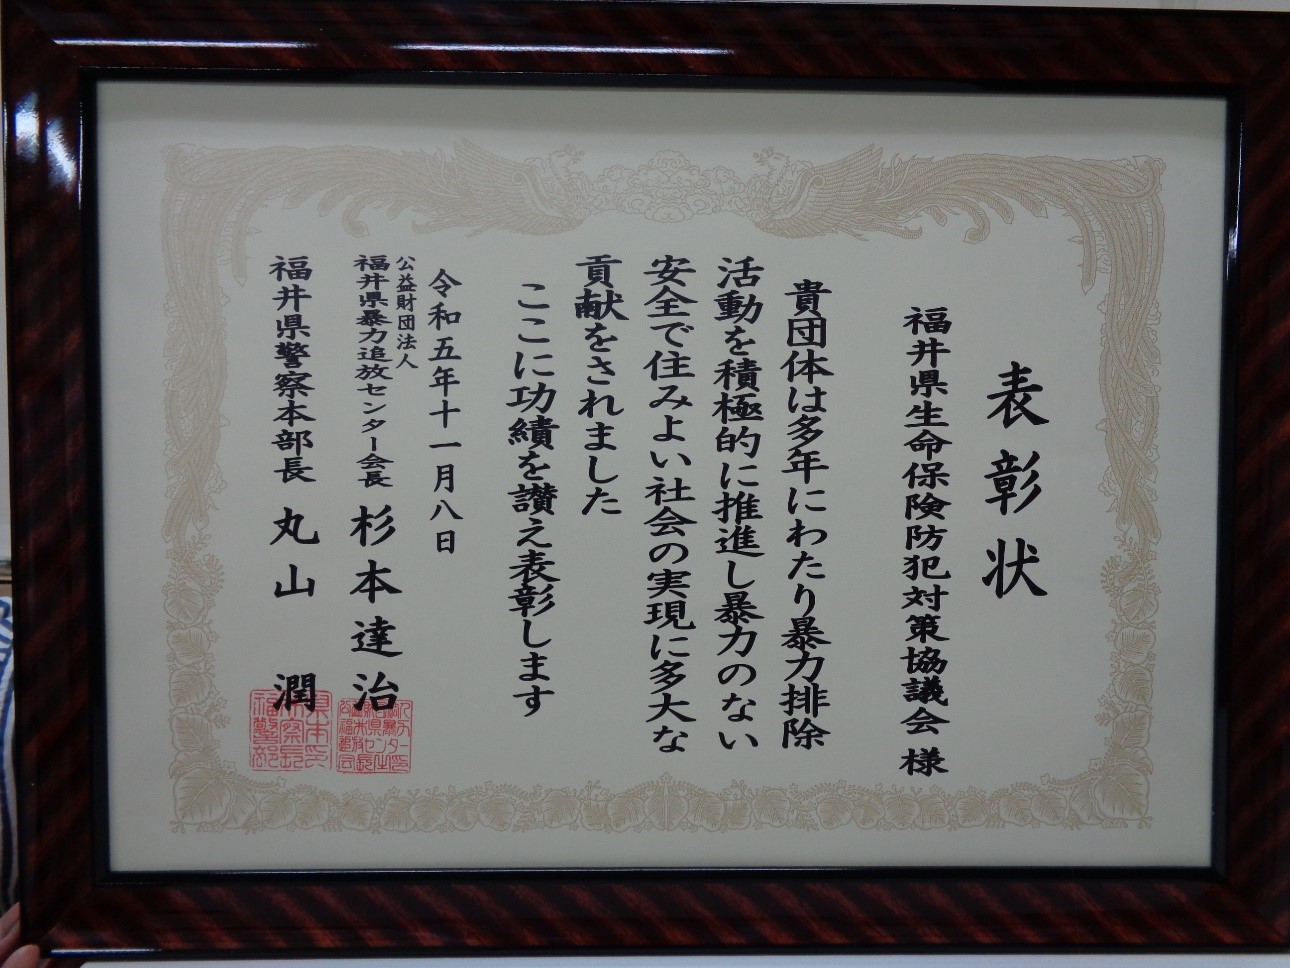 表彰状
福井県生命保険防犯対策協議会 様
貴団体は多年にわたり暴力排除
活動を積極的に推進し暴力のない
安全で住みよい社会の実現に多大な
貢献をされました
ここに功績を讃え表彰します
令和五年十一月八日
公益財団法人
福井県暴力追放センター会長 杉本達治
福井県警察本部長 丸山 潤